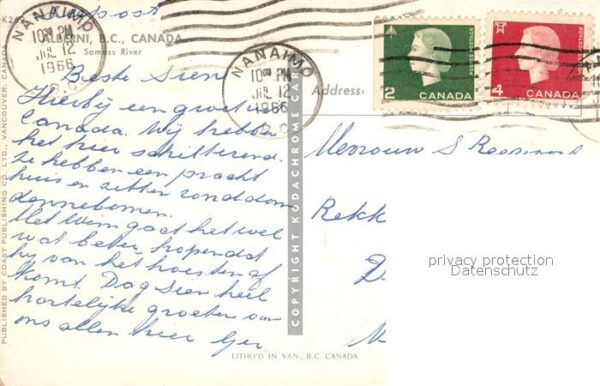 ALBERNI, B.C., CANADA
Somass River
K2
NANAIMO
10 PM
JUL 12
1966
B.C.
NANAIMO
10 PM
JUL 12
1966
B.C.
2
CANADA
POSTES POSTAGE
4
CANADA
POSTES POSTAGE
Address
Beste Sien
Hierbij een groet uit
Canada. Wij hebben
het hier schitterend.
Ze hebben een pracht
huis en zitten rond dom
dennebomen.
Met Wim gaat het wel
wat beter, hopend dat
hij van het hoesten af
komt. Dag Sien heel
hartelijke groeten van
ons allen hier Ger
Mevrouw S
Rekk
privacy protection
Datenschutz
PUBLISHED BY COAST PUBLISHING CO. LTD., VANCOUVER, CANADA
COPYRIGHT KODACHROME CARD
LITHO'D IN VAN., B.C. CANADA